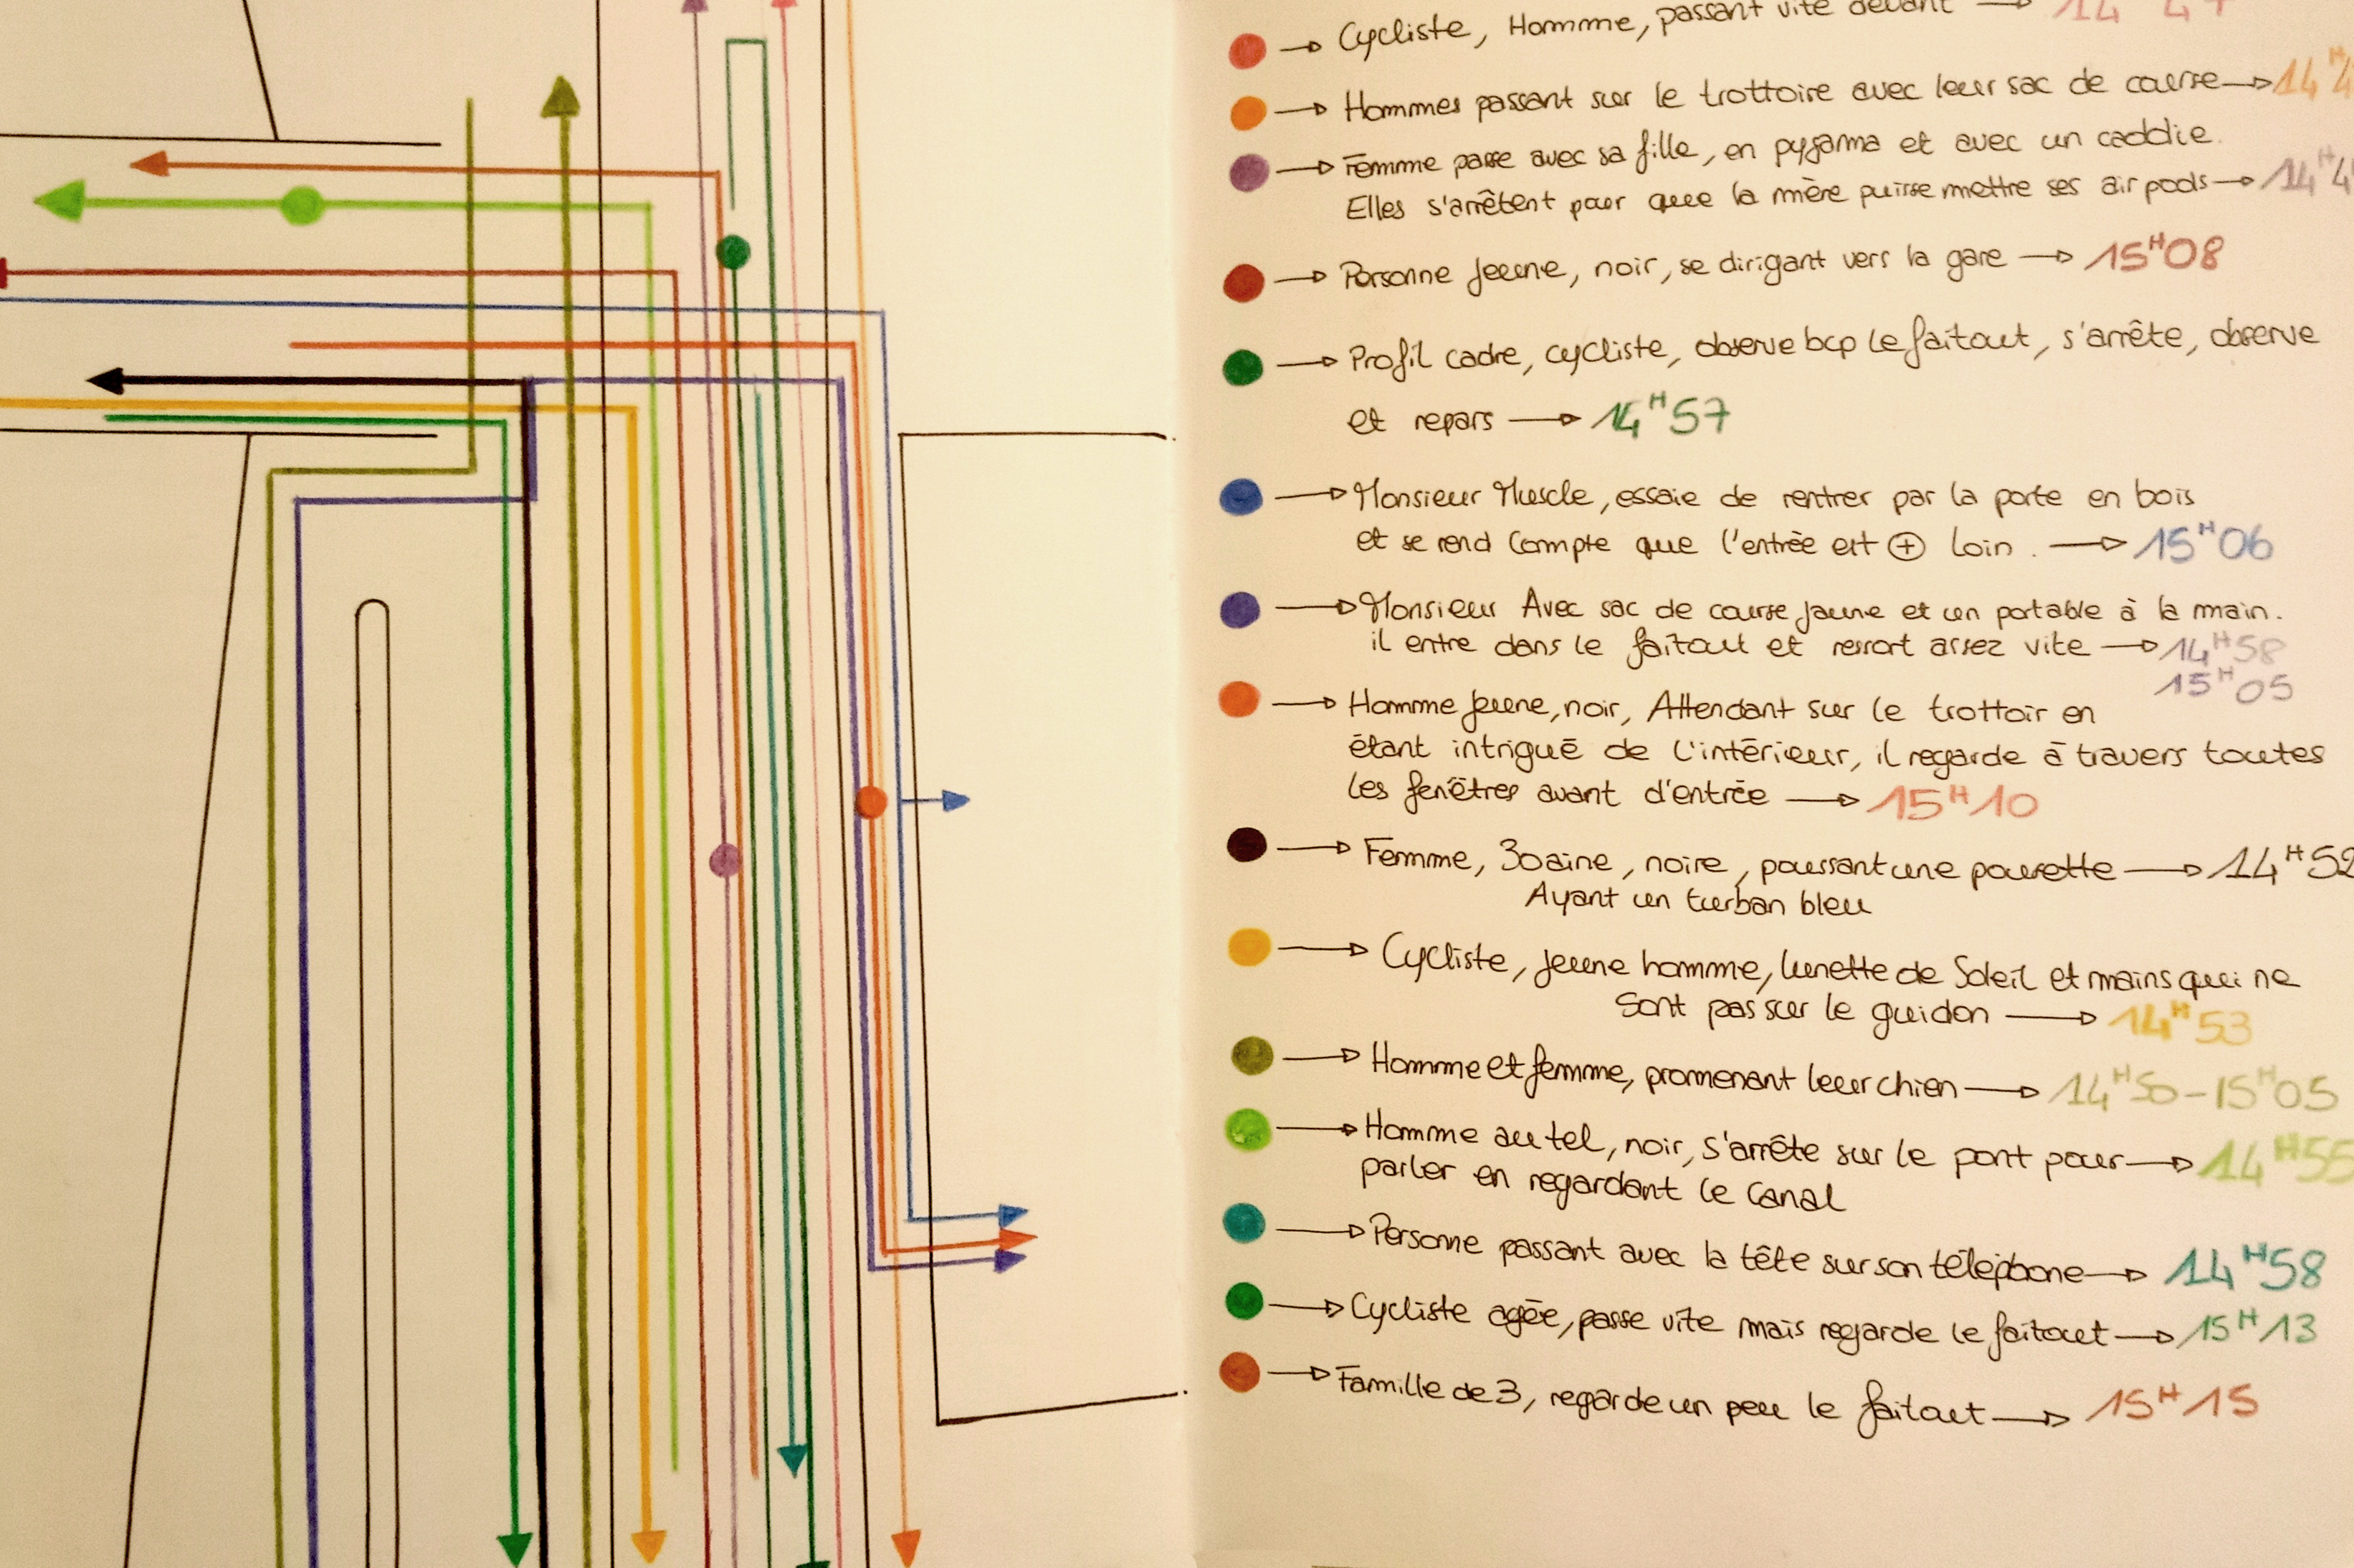 Cycliste, Homme, passant vite devant
Hommes passant sur le trottoire avec leur sac de course
Femme passe avec sa fille, en pyjama et avec un caddie.
Elles s'arrêtent pour que la mère puisse mettre ses air pods
Personne Jeune, noir, se dirigant vers la gare → 15H08
Profil cadre, cycliste, observe bcp Le faitout, s'arrête, observe
et repars → 14H57
Monsieur Muscle, essaie de rentrer par la porte en bois
et se rend Compte que l'entrée est ⊕ Loin. → 15H06
Monsieur Avec sac de course Jaune et un portable à la main.
il entre dans le faitout et ressort assez vite → 14H58
15H05
Homme Jeune, noir, Attendant sur le trottoir en
étant intrigué de l'intérieur, il regarde à travers toutes
les fenêtres avant d'entrée → 15H10
Femme, 30aine, noire, poussant une pousette → 14H52
Ayant un turban bleu
Cycliste, jeune homme, lunette de Soleil et mains qui ne
sont pas sur le guidon → 14H53
Homme et femme, promenant leur chien → 14H50-15H05
Homme au tel, noir, s'arrête sur le pont pour → 14H55
parler en regardant le Canal
Personne passant avec la tête sur son téléphone → 14H58
Cycliste agée, passe vite mais regarde le faitout → 15H13
Famille de 3, regarde un peu le faitout → 15H15